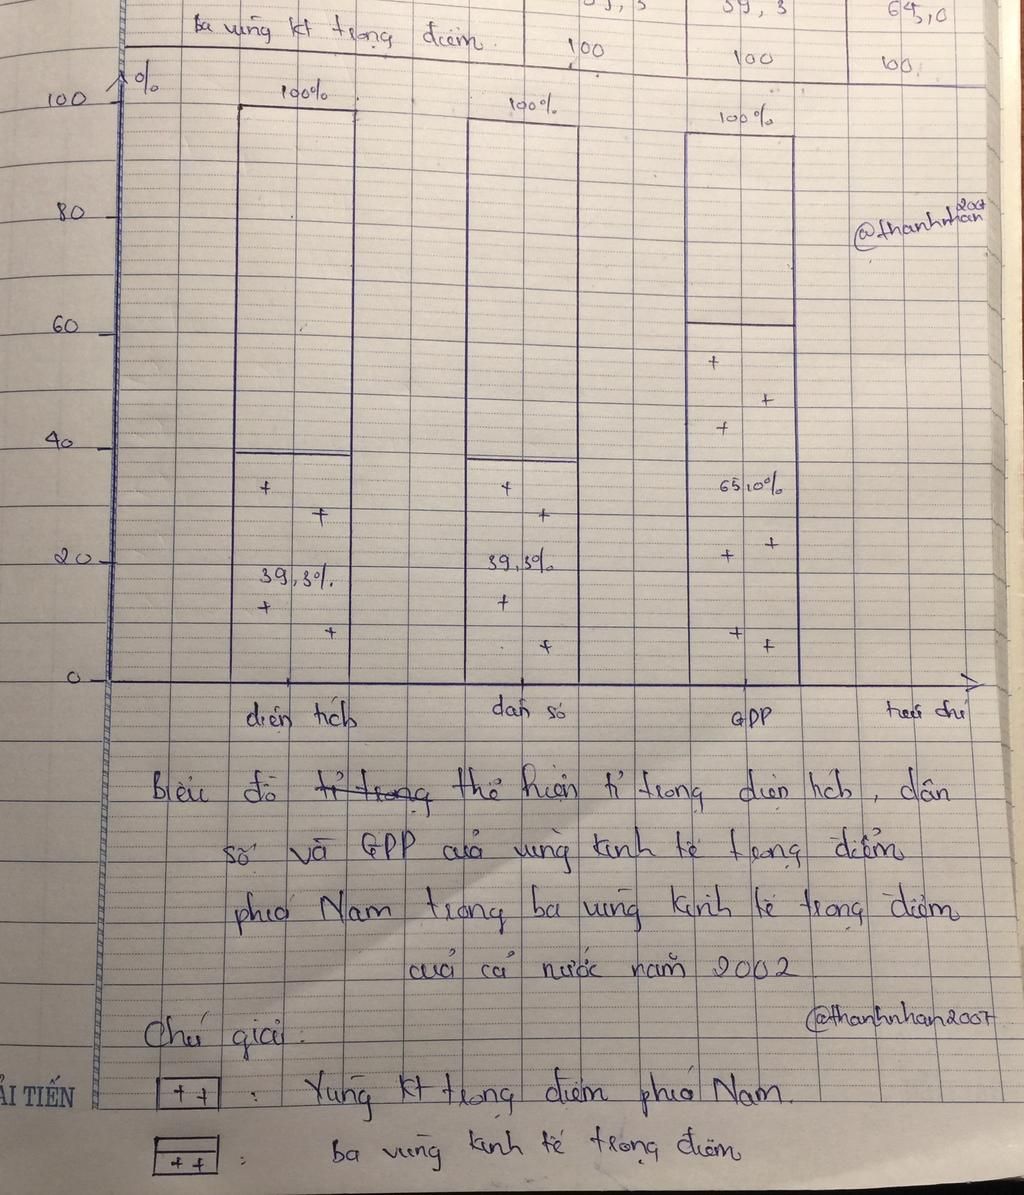 39,3 39,3 65,0
ba vùng kt trọng điểm. 100 100 100.
%
100 100% 100% 100%
80
@thanhnhan2007
60
40
65,0%
20 39,3%
39,3%.
0
diện tích dân số GDP tiêu chí
Biểu đồ tỉ trọng thể hiện tỉ trọng diện tích, dân
số và GDP của vùng kinh tế trọng điểm
phía Nam trong ba vùng kinh tế trọng điểm
của cả nước năm 2002
@thanhnhan2007
Chú giải:
++ : Vùng kt trọng điểm phía Nam.
ẢI TIẾN
++ : ba vùng kinh tế trọng điểm